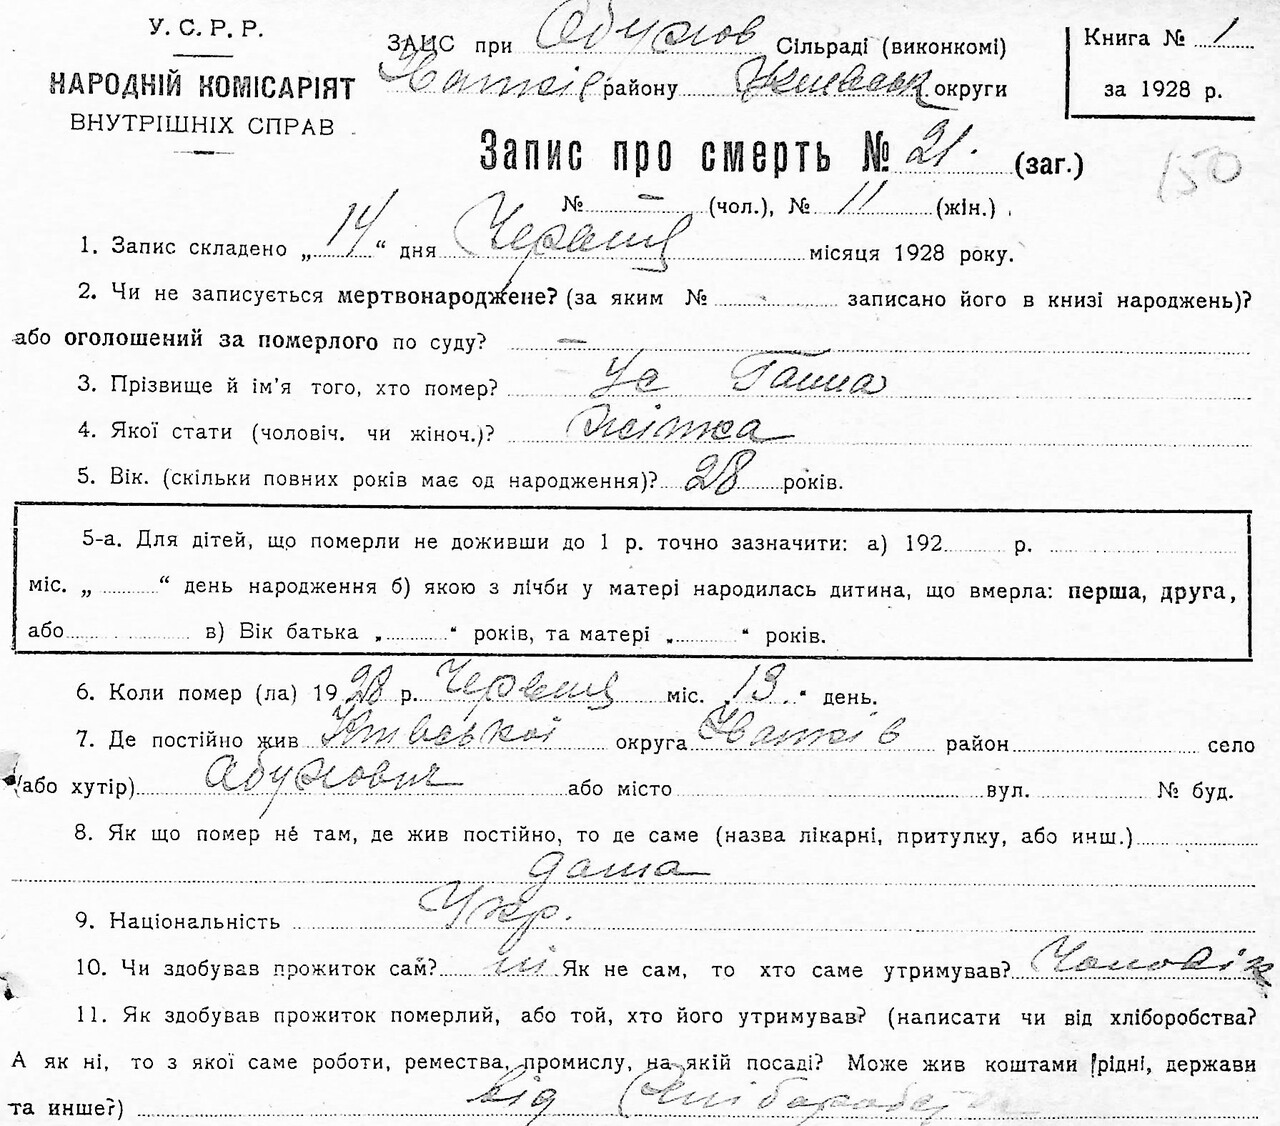 У. С. Р. Р.
НАРОДНІЙ КОМІСАРІЯТ
ВНУТРІШНІХ СПРАВ
ЗАЦС при Обухов Сільраді (виконкомі)
району Київськ округи
Книга № 1
за 1928 р.
Запис про смерть № 21. (заг.)
150
№ — (чол.), № 11 (жін.)
1. Запис складено „ 14 “ дня Червня місяця 1928 року.
2. Чи не записується мертвонароджене? (за яким № записано його в книзі народжень)?
або оголошений за померлого по суду? —
3. Прізвище й ім'я того, хто помер? Ус Ганна
4. Якої стати (чоловіч. чи жіноч.)? жінка
5. Вік. (скільки повних років має од народження)? 28 років.
5-а. Для дітей, що померли не доживши до 1 р. точно зазначити: а) 192 р.
міс. „ “ день народження б) якою з лічби у матері народилась дитина, що вмерла: перша, друга,
або в) Вік батька „ “ років, та матері „ “ років.
6. Коли помер (ла) 1928 р. Червня міс. 13 день.
7. Де постійно жив Київської округа район село
(або хутір) або місто вул. № буд.
8. Як що помер не там, де жив постійно, то де саме (назва лікарні, притулку, або инш.)
дома
9. Національність Укр.
10. Чи здобував прожиток сам? ні Як не сам, то хто саме утримував? Чоловік
11. Як здобував прожиток померлий, або той, хто його утримував? (написати чи від хліборобства?
А як ні, то з якої саме роботи, ремества, промислу, на якій посаді? Може жив коштами рідні, держави
та инше?) від